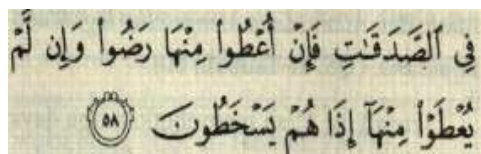 فِي ٱلصَّدَقَٰتِ فَإِنۡ أُعۡطُواْ مِنۡهَا رَضُواْ وَإِن لَّمۡ
يُعۡطَوۡاْ مِنۡهَآ إِذَا هُمۡ يَسۡخَطُونَ ٥٨